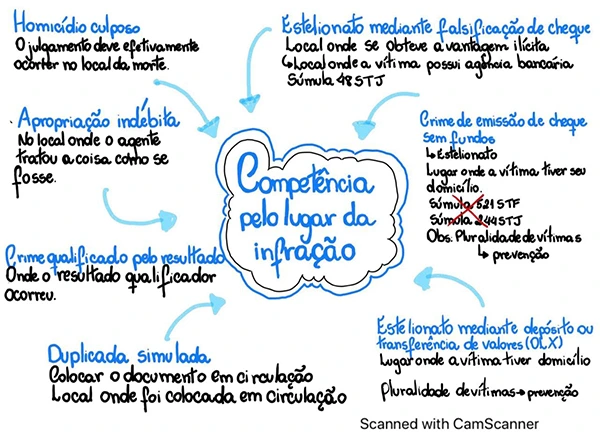 Homicídio culposo
O julgamento deve efetivamente
ocorrer no local da morte.
Estelionato mediante falsificação de cheque
Local onde se obteve a vantagem ilícita
↳Local onde a vítima possui agência bancária
Súmula 48 STJ
Apropriação indébita
No local onde o agente
tratou a coisa como se
fosse.
Crime de emissão de cheque
sem fundos
↳Estelionato
Lugar onde a vítima tiver seu
domicílio.
Súmula 521 STF
Súmula 244 STJ
Obs. Pluralidade de vítimas
↳ prevenção
Competência
pelo lugar da
infração
Crime qualificado pelo resultado
Onde o resultado qualificador
ocorreu.
Duplicada simulada
Colocar o documento em circulação
Local onde foi colocada em circulação
Estelionato mediante depósito ou
transferência de valores (OLX)
Lugar onde a vítima tiver domicílio
Pluralidade de vítimas→prevenção
Scanned with CamScanner